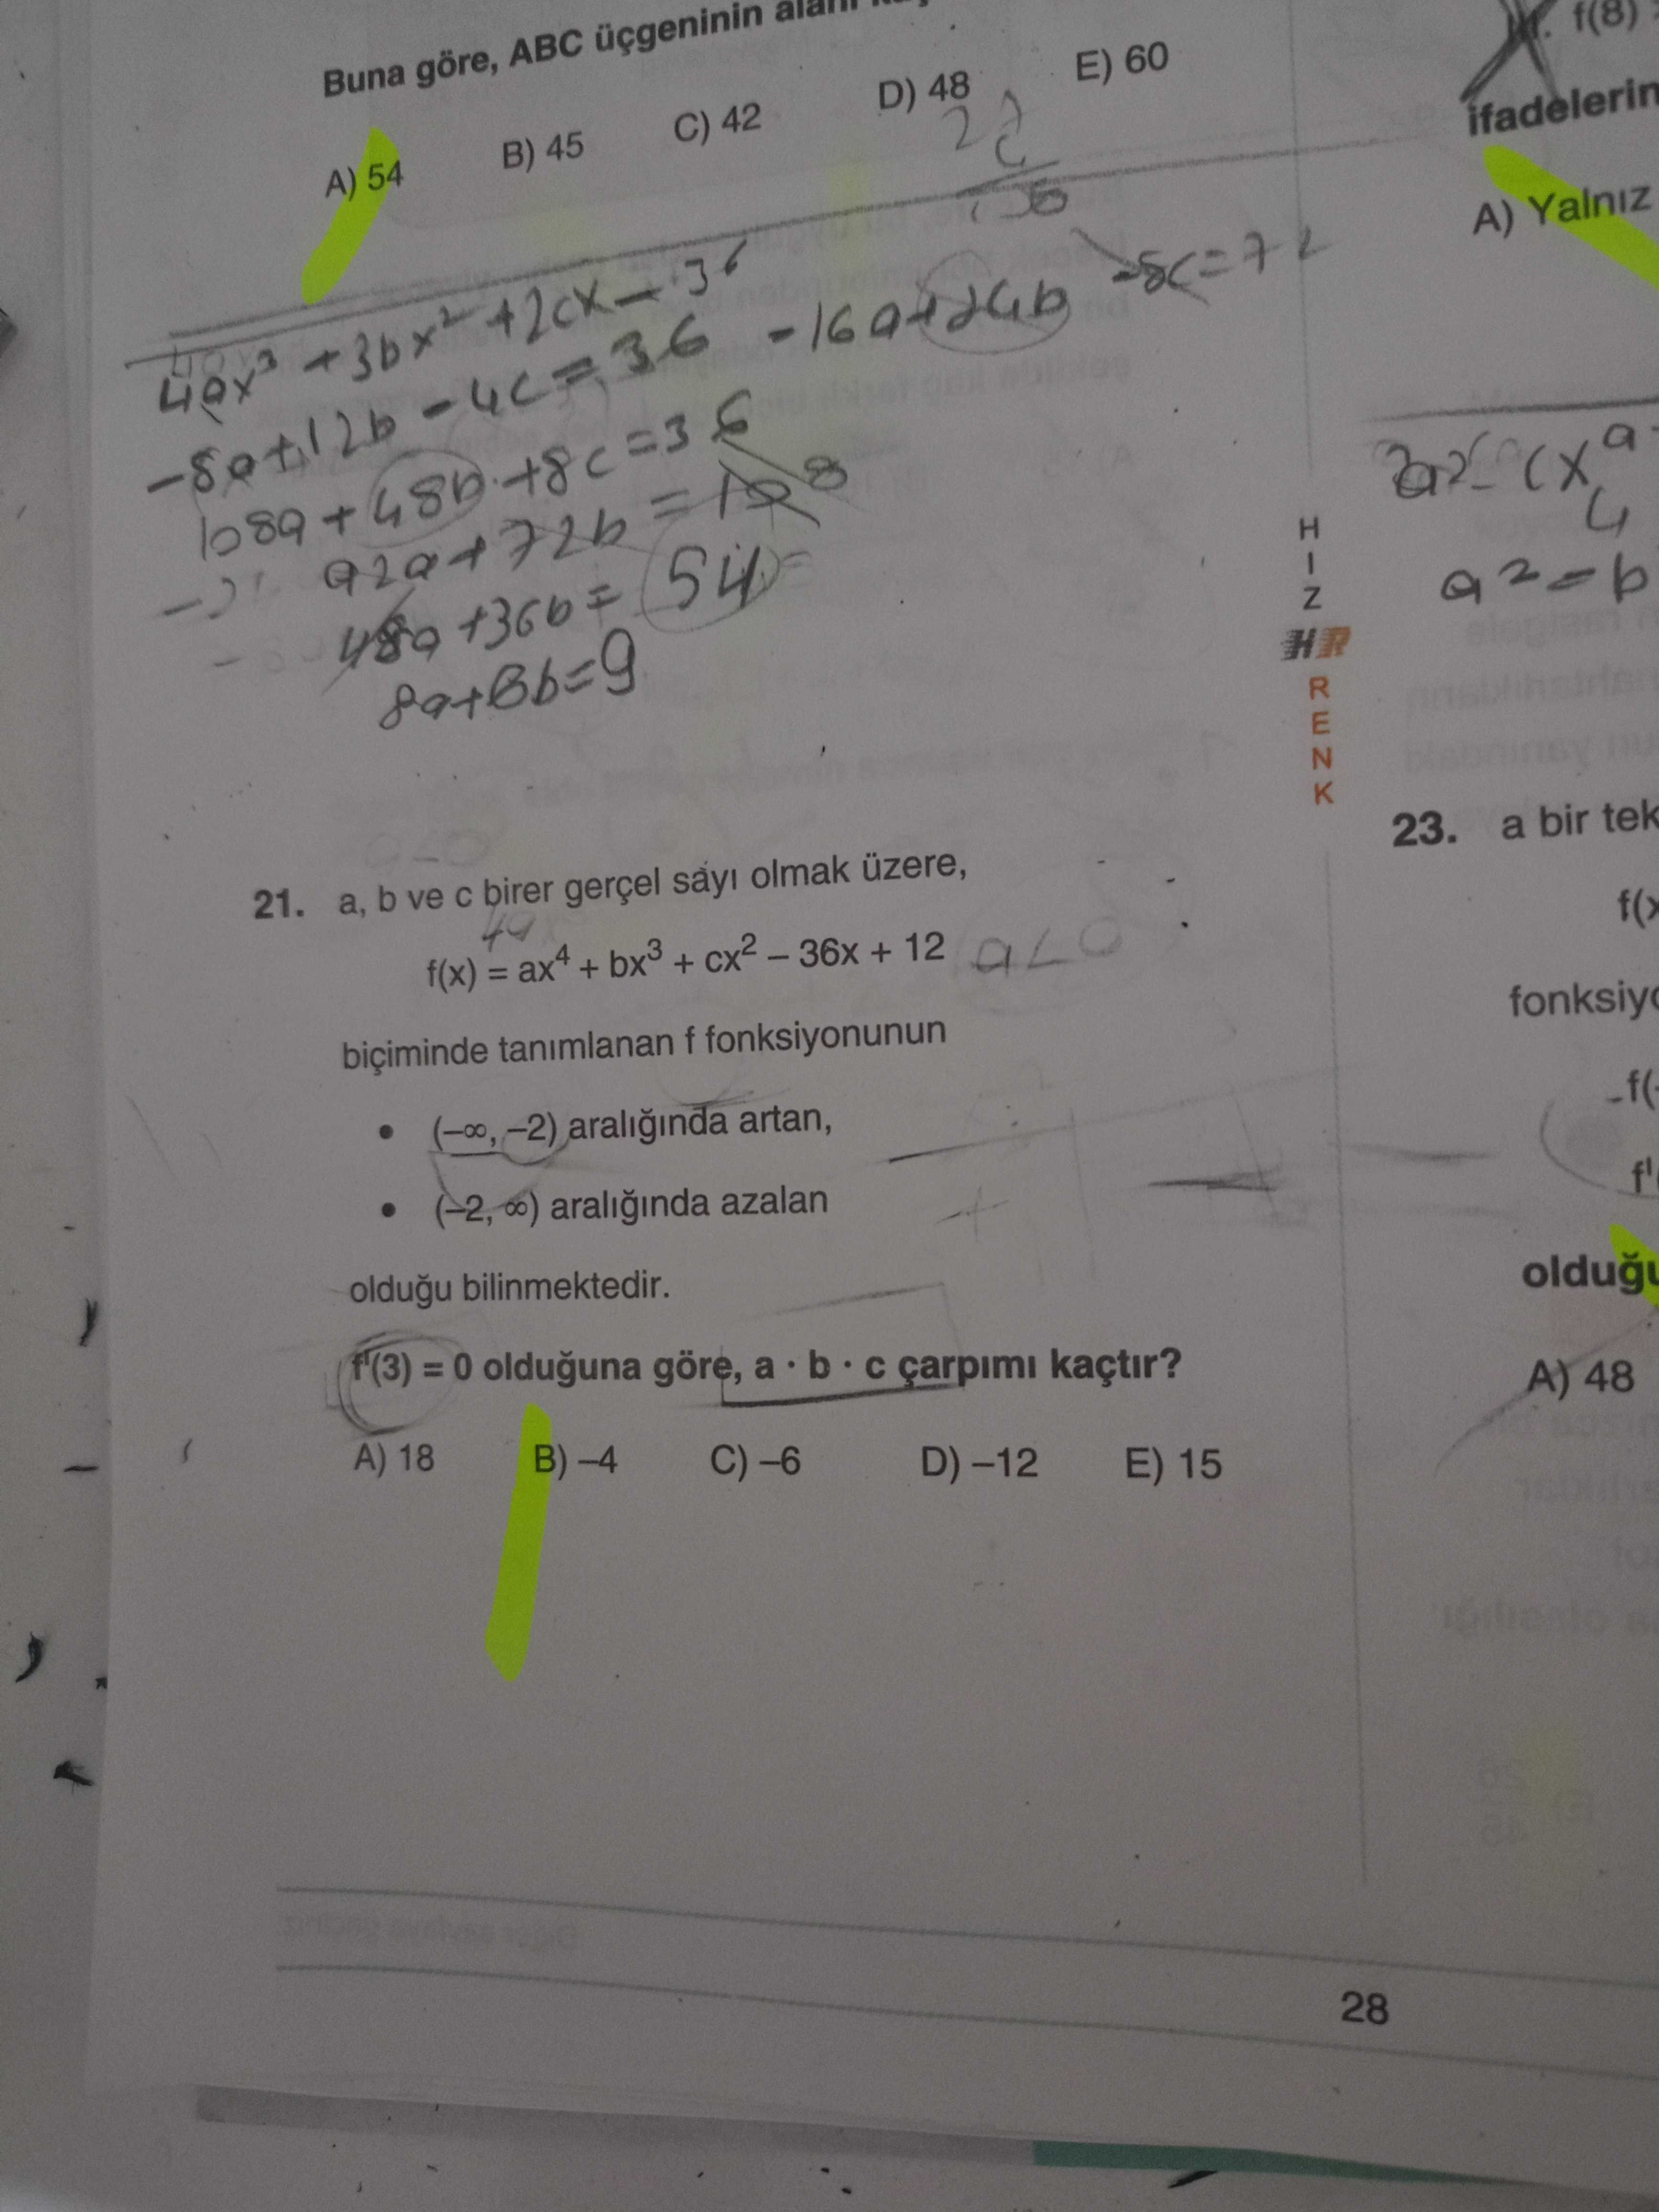 Buna göre, ABC üçgeninin alanı
A) 54 B) 45 C) 42 D) 48 E) 60
4ax³ + 3bx² + 2cx - 36
-8a+12b - 4c = 36 -16a+24b -8c=72
108a + 48b + 8c = 36
92a + 72b = 108
48a +36b = 54
8a+6b=9
21. a, b ve c birer gerçel sayı olmak üzere,
4a
f(x) = ax⁴ + bx³ + cx² – 36x + 12 a<0
biçiminde tanımlanan f fonksiyonunun
• (–∞, –2) aralığında artan,
• (–2, ∞) aralığında azalan
olduğu bilinmektedir.
f'(3) = 0 olduğuna göre, a · b · c çarpımı kaçtır?
A) 18 B) –4 C) –6 D) –12 E) 15
f(8)
ifadelerin
A) Yalnız
a² = b
H
I
Z
HR
R
E
N
K
23. a bir tek
f(x
fonksiyo
olduğu
A) 48
28